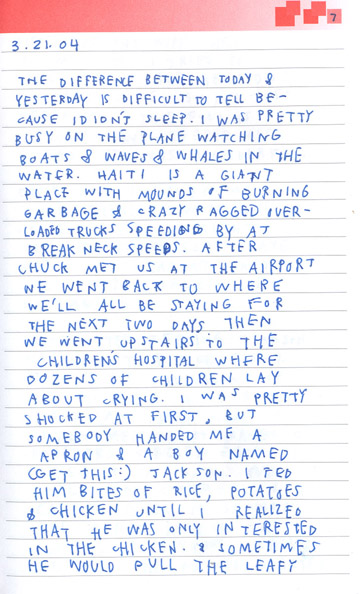 7
3.21.04
THE DIFFERENCE BETWEEN TODAY &
YESTERDAY IS DIFFICULT TO TELL BE-
CAUSE I DIDN'T SLEEP. I WAS PRETTY
BUSY ON THE PLANE WATCHING
BOATS & WAVES & WHALES IN THE
WATER. HAITI IS A GIANT
PLACE WITH MOUNDS OF BURNING
GARBAGE & CRAZY RAGGED OVER-
LOADED TRUCKS SPEEDING BY AT
BREAK NECK SPEEDS. AFTER
CHUCK MET US AT THE AIRPORT
WE WENT BACK TO WHERE
WE'LL ALL BE STAYING FOR
THE NEXT TWO DAYS. THEN
WE WENT UPSTAIRS TO THE
CHILDREN'S HOSPITAL WHERE
DOZENS OF CHILDREN LAY
ABOUT CRYING. I WAS PRETTY
SHOCKED AT FIRST, BUT
SOMEBODY HANDED ME A
APRON & A BOY NAMED
(GET THIS:) JACKSON. I FED
HIM BITES OF RICE, POTATOES
& CHICKEN UNTIL I REALIZED
THAT HE WAS ONLY INTERESTED
IN THE CHICKEN. & SOMETIMES
HE WOULD PULL THE LEAFY